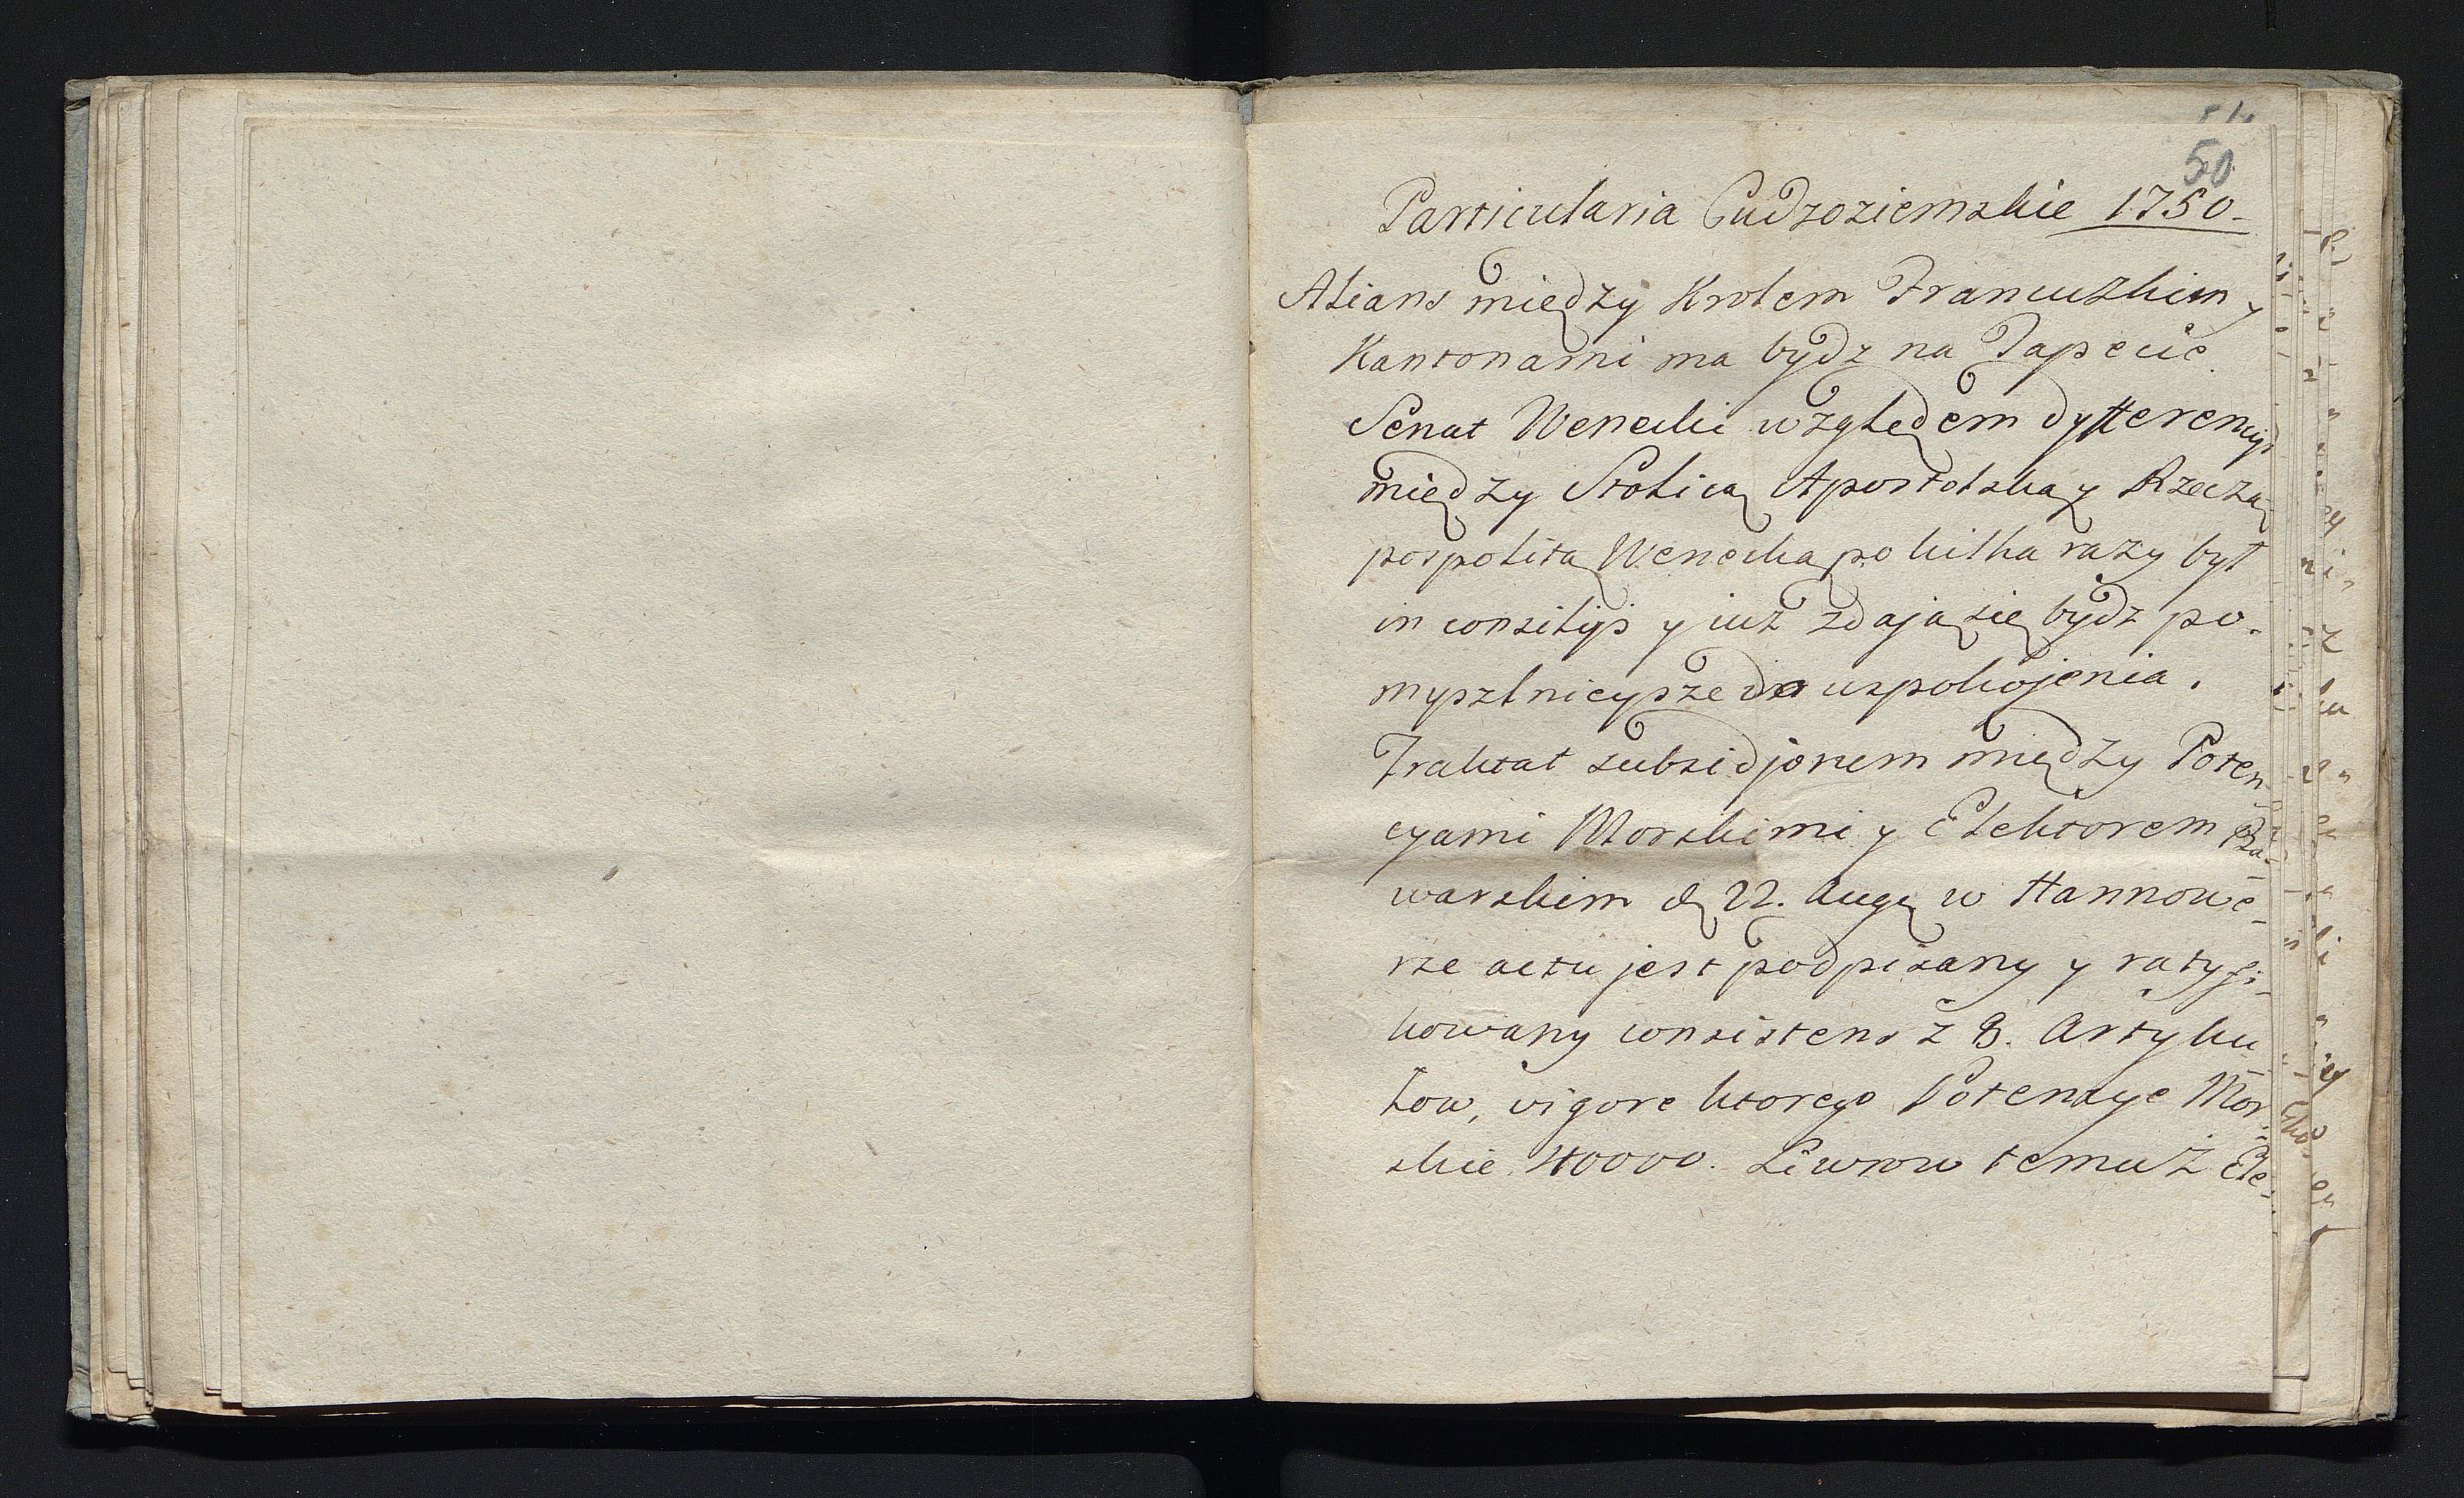 50
Particularia Cudzoziemskie 1750.
Alians między Krolem Francuzkim y
Kantonami ma bydz na Tapecie.
Senat Wenecki względem dyfferencyi
między Stolicą Apostolską y Rzeczą
pospolitą Wenecką po kilka razy był
in consilijs y iuż zdają się bydz po-
myszlnieysze do uspokojenia.
Traktat subsidjonem między Poten
cyami Morskimi y Elektorem Ba-
warskim d. 22. Aug. w Hannowe-
rze actu jest podpisany y ratyfi-
kowany consistens z 9. Artyku
łow, vigore ktorego Potencye Mor-
skie 40000. Liwrow temuż Ele-